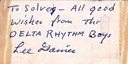 To Solveig - All good
wishes from the
DELTA RHYTHM Boys
Lee Gaines